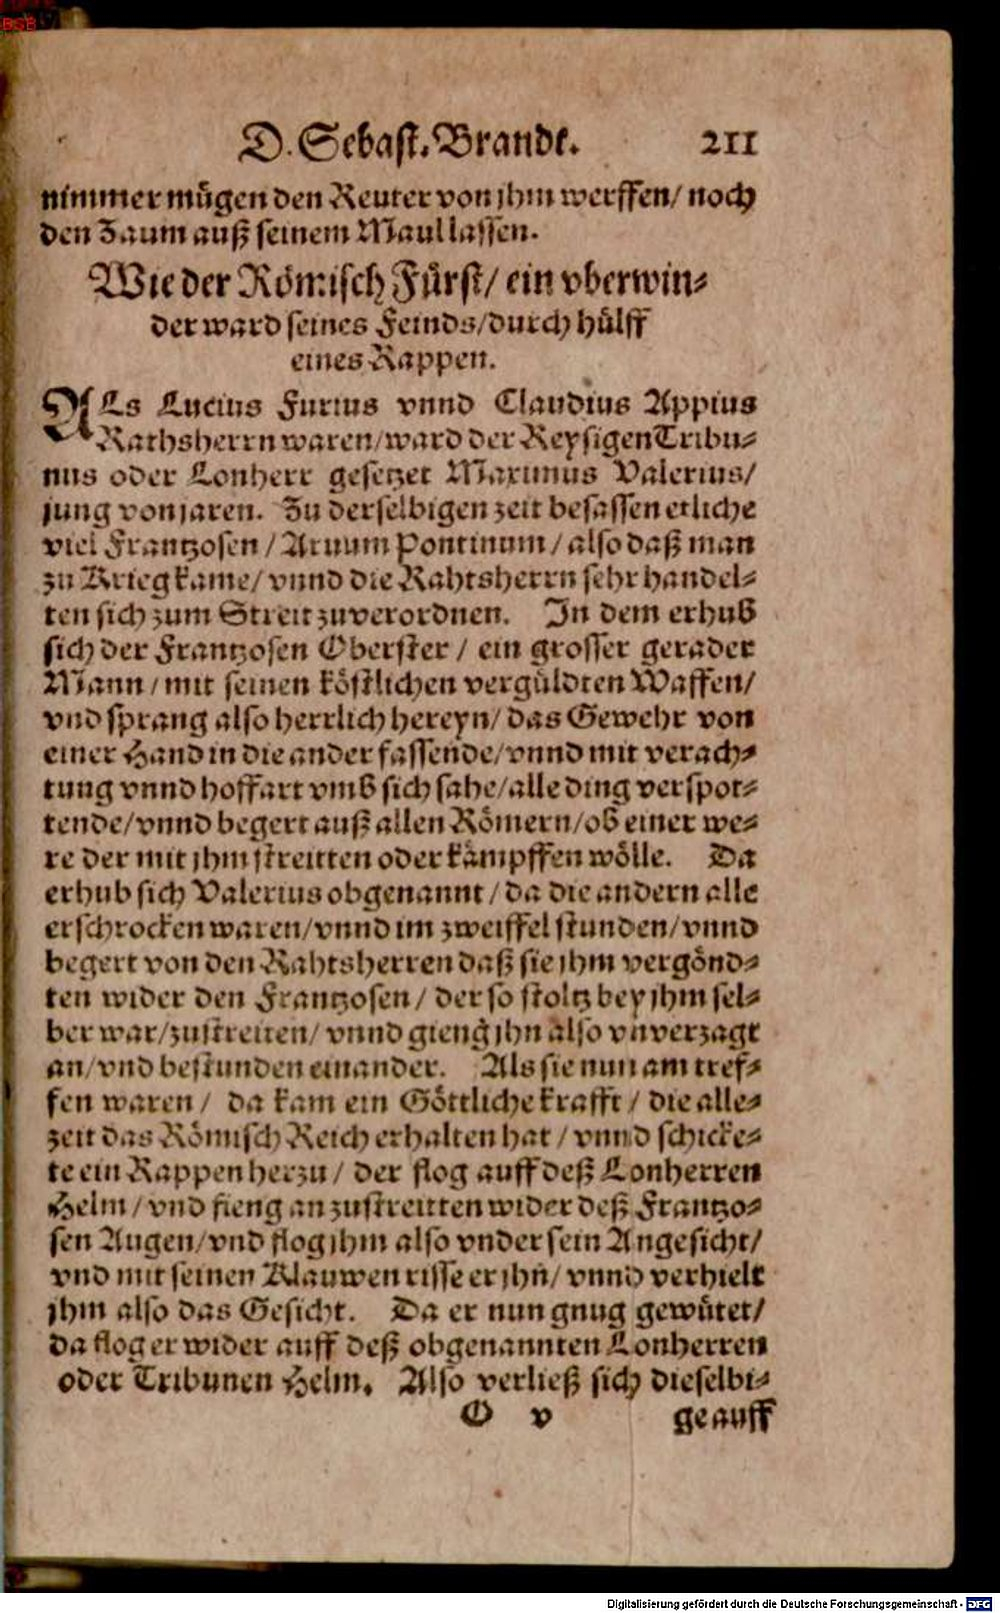 BSB
D. Sebast. Brandt. 211
nimmer mügen den Reuter von jhm werffen/ noch
den Zaum auß seinem Maul lassen.
Wie der Römisch Fürst/ ein vberwin-
der ward seines Feinds/durch hülff
eines Rappen.
ALs Lucius Furius vnnd Claudius Appius
Rathsherrn waren/ward der Reysigen Tribu-
nus oder Lonherr gesetzet Maximus Valerius/
jung von jaren. Zu derselbigen zeit besassen etliche
viel Frantzosen / Aruum Pontinum / also daß man
zu Krieg kame/ vnnd die Rahtsherrn sehr handel-
ten sich zum Streit zuverordnen. In dem erhub
sich der Frantzosen Oberster / ein grosser gerader
Mann / mit seinen köstlichen vergüldten Waffen/
vnd sprang also herrlich hereyn/ das Gewehr von
einer Hand in die ander fassende/vnnd mit verach-
tung vnnd hoffart vmb sich sahe/alle ding verspot-
tende/vnnd begert auß allen Römern/ob einer we-
re der mit jhm streitten oder kämpffen wölle. Da
erhub sich Valerius obgenannt / da die andern alle
erschrocken waren/vnnd im zweiffel stunden/vnnd
begert von den Rahtsherren daß sie jhm vergönd-
ten wider den Frantzosen / der so stoltz bey jhm sel-
ber war/zustreiten/ vnnd gieng jhn also vnverzagt
an/vnd bestunden einander. Als sie nun am tref-
fen waren / da kam ein Göttliche krafft / die alle-
zeit das Römisch Reich erhalten hat / vnnd schicke-
te ein Rappen herzu / der flog auff deß Lonherren
Helm / vnd fieng an zustreitten wider deß Frantzo-
sen Augen/vnd flog jhm also vnder sein Angesicht/
vnd mit seinen Klauwen risse er jhn/ vnnd verhielt
jhm also das Gesicht. Da er nun gnug gewütet/
da flog er wider auff deß obgenannten Lonherren
oder Tribunen Helm. Also verließ sich dieselbi-
O v ge auff
Digitalisierung gefördert durch die Deutsche Forschungsgemeinschaft - DFG